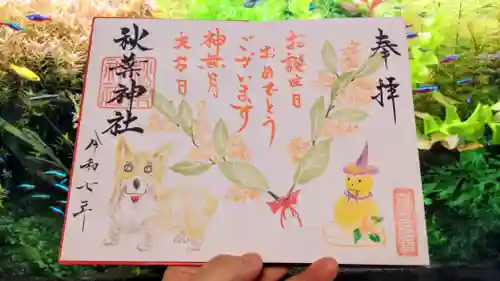 奉拝
お誕生日
おめでとう
ございます
神無月
大吉日
秋葉神社
令和七年